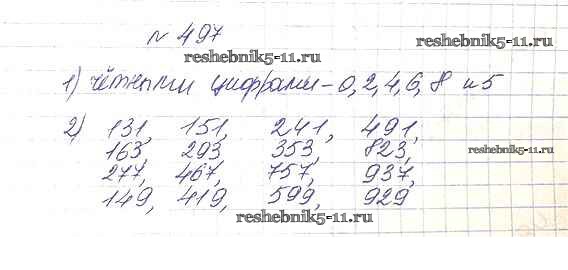 № 497
reshebnik5-11.ru
reshebnik5-11.ru
1) чётными цифрами – 0, 2, 4, 6, 8 и 5
2) 131, 151, 241, 491,
163, 293, 353, 823,
reshebnik5-11.ru
277, 467, 757, 937,
149, 419, 599, 929
reshebnik5-11.ru